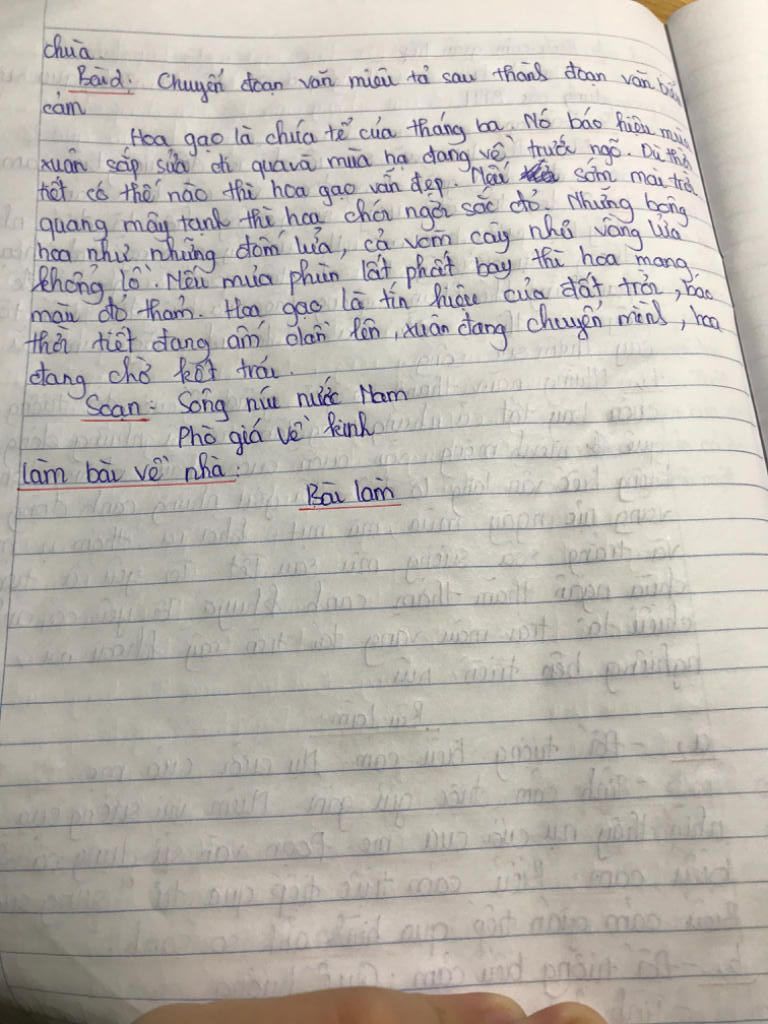 chùa
Bài 2: Chuyển đoạn văn miêu tả sau thành đoạn văn biểu
cảm
Hoa gạo là chúa tể của tháng ba. Nó báo hiệu mùa
xuân sắp sửa đi qua và mùa hạ đang về trước ngõ. Dù thời
tiết có thế nào thì hoa gạo vẫn đẹp. Nếu sớm mai trời
quang mây tạnh thì hoa chói ngời sắc đỏ. Những bông
hoa như những đốm lửa, cả vòm cây như vòng lửa
khổng lồ. Nếu mưa phùn lất phất bay thì hoa mang
màu đỏ thắm. Hoa gạo là tín hiệu của đất trời, báo
thời tiết đang ấm dần lên, xuân đang chuyển mình, hoa
đang chờ kết trái.
Soạn: Sông núi nước Nam
Phò giá về kinh
làm bài về nhà:
Bài làm